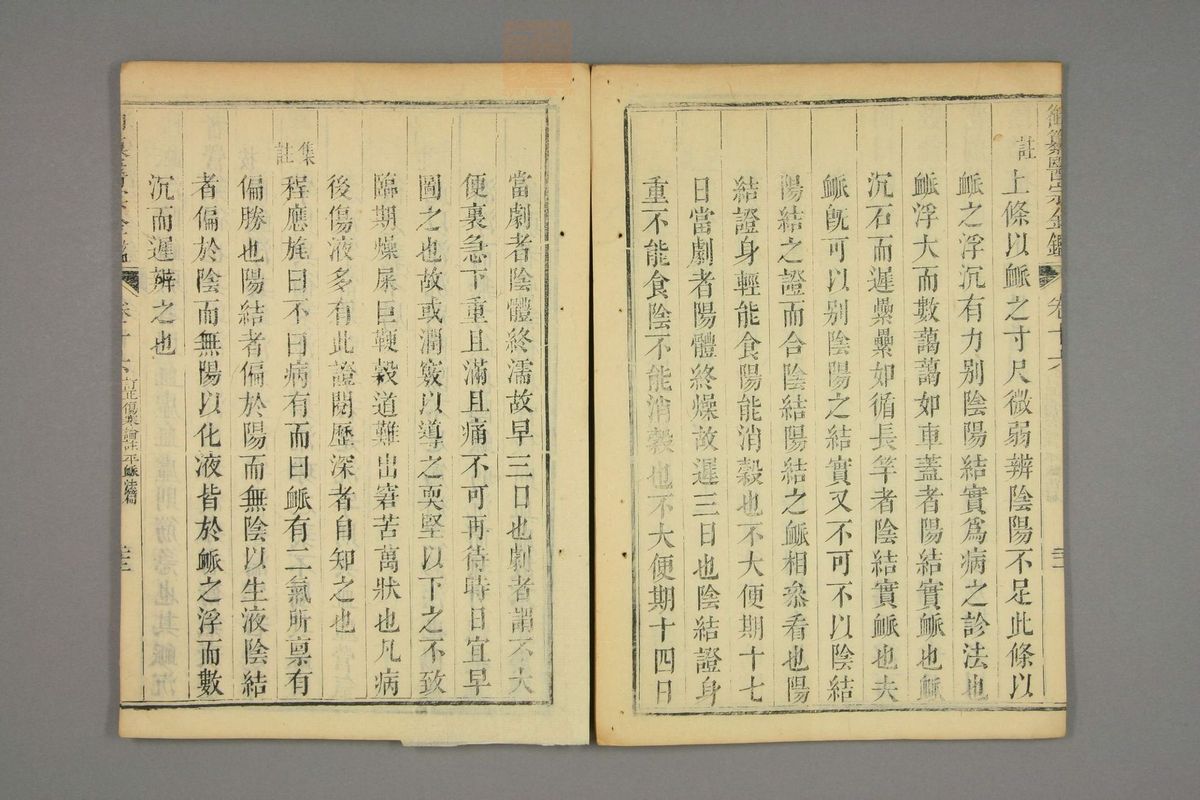 御纂醫宗金鑑 卷十六
註
上條以脈之寸尺微弱辨陰陽不足此條以
脈之浮沉有力别陰陽結實爲病之診法也
脈浮大而數藹藹如車蓋者陽結實脈也脈
沉石而遲纍纍如循長竿者陰結實脈也夫
脈旣可以别陰陽之結實又不可不以陰結
陽結之證而合陰結陽結之脈相叅看也陽
結證身輕能食陽能消穀也不大便期十七
日當劇者陽體終燥故遲三日也陰結證身
重不能食陰不能消穀也不大便期十四日
當劇者陰體終濡故早三日也劇者謂不大
便裏急下重且滿且痛不可再待時日宜早
圖之也故或潤竅以導之耎堅以下之不致
臨期燥屎巨鞕穀道難出窘苦萬狀也凡病
後傷液多有此證閱歷深者自知之也
集註
程應旄曰不曰病有而曰脈有二氣所禀有
偏勝也陽結者偏於陽而無陰以生液陰結
者偏於陰而無陽以化液皆於脈之浮而數
沉而遲辨之也
訂正傷寒論註平脈法篇